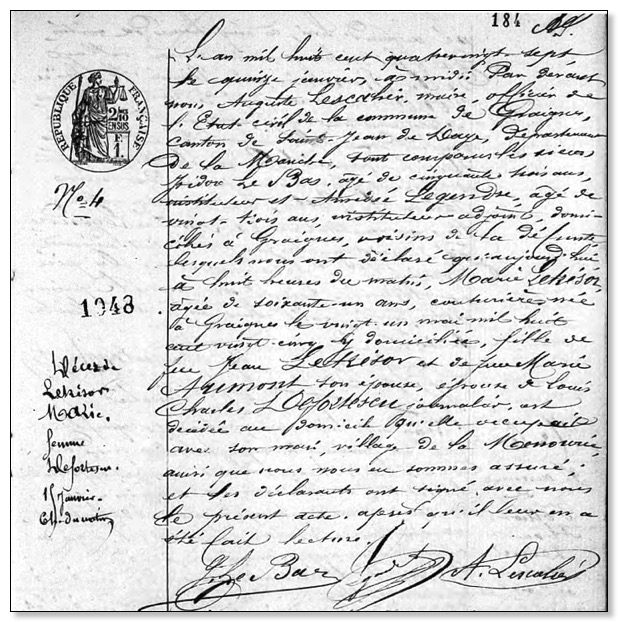 184
RÉPUBLIQUE FRANÇAISE
2/10 EN SUS
F 1
No 4
1048
Décès de
Letrésor
Marie.
femme
Defortescu.
15 Janvier.
L'an mil huit cent quatre vingt sept
le quinze janvier, à midi. Par devant
nous Auguste Lescalier, maire, officier de
l'Etat civil de la commune de Graignes,
canton de Saint-Jean de Daye, département
de la Manche, sont comparus les sieurs
Isidore Le Bas, âgé de cinquante trois ans,
instituteur et Amédée Legendre, âgé de
vingt-trois ans, instituteur adjoint, domi-
ciliés à Graignes, voisins de la défunte,
lesquels nous ont déclaré qu'aujourd'hui
à huit heures du matin, Marie Letrésor,
âgée de soixante-un ans, couturière, née
à Graignes le vingt-un mai mil huit
cent vingt-cinq, y domiciliée, fille de
feu Jean Letrésor et de feue Marie
Aumont son épouse, épouse de Louis
Charles Defortescu journalier, est
décédée au domicile qu'elle occupait
avec son mari, village de la
ainsi que nous nous en sommes assuré;
et les déclarants ont signé avec nous
le présent acte, après qu'il leur en a
été fait lecture.
Le Bas
A. Lescalier